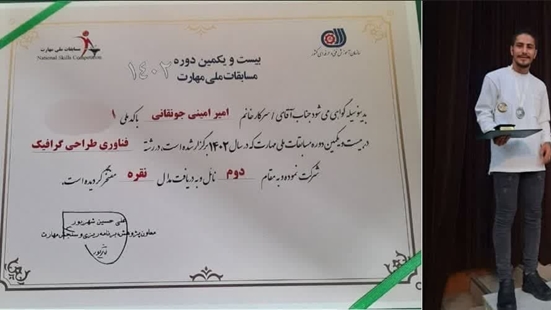 مسابقات ملی مهارت
National Skills Competition
سازمان آموزش فنی و حرفه‌ای کشور
بیست و یکمین دوره
مسابقات ملی مهارت
۱۴۰۲
بدینوسیله گواهی می شود جناب آقای / سرکار خانم امیر امینی جونقانی با کد ملی ۱
در بیست و یکمین دوره مسابقات ملی مهارت که در سال ۱۴۰۲ برگزار شده است، در رشته فناوری طراحی گرافیک
شرکت نموده و به مقام دوم نائل و به دریافت مدال نقره مفتخر گردیده است.
علی حسین شهریور
معاون پژوهش، برنامه ریزی و سنجش مهارت